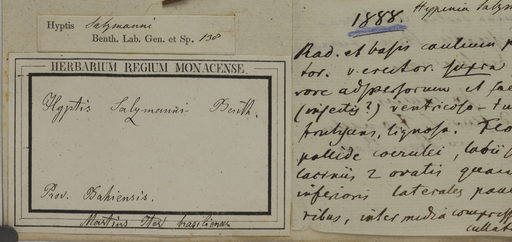 Hyptis Salzmanni
Benth. Lab. Gen. et Sp. 138
HERBARIUM REGIUM MONACENSE.
Hyptis Salzmanni Benth.
Prov. Bahiensis.
Martius Iter brasiliense
1888.
Hypenia Salzm
Rad. et basis caulium
tor. v. erectior supra
vore adspersorum et
(insectis?) ventricoso-tu
frutescens, lignosa.
pallide coerulei, labii
laciniis 2 ovatis
inferioris laterales
ribus, intermedia compress